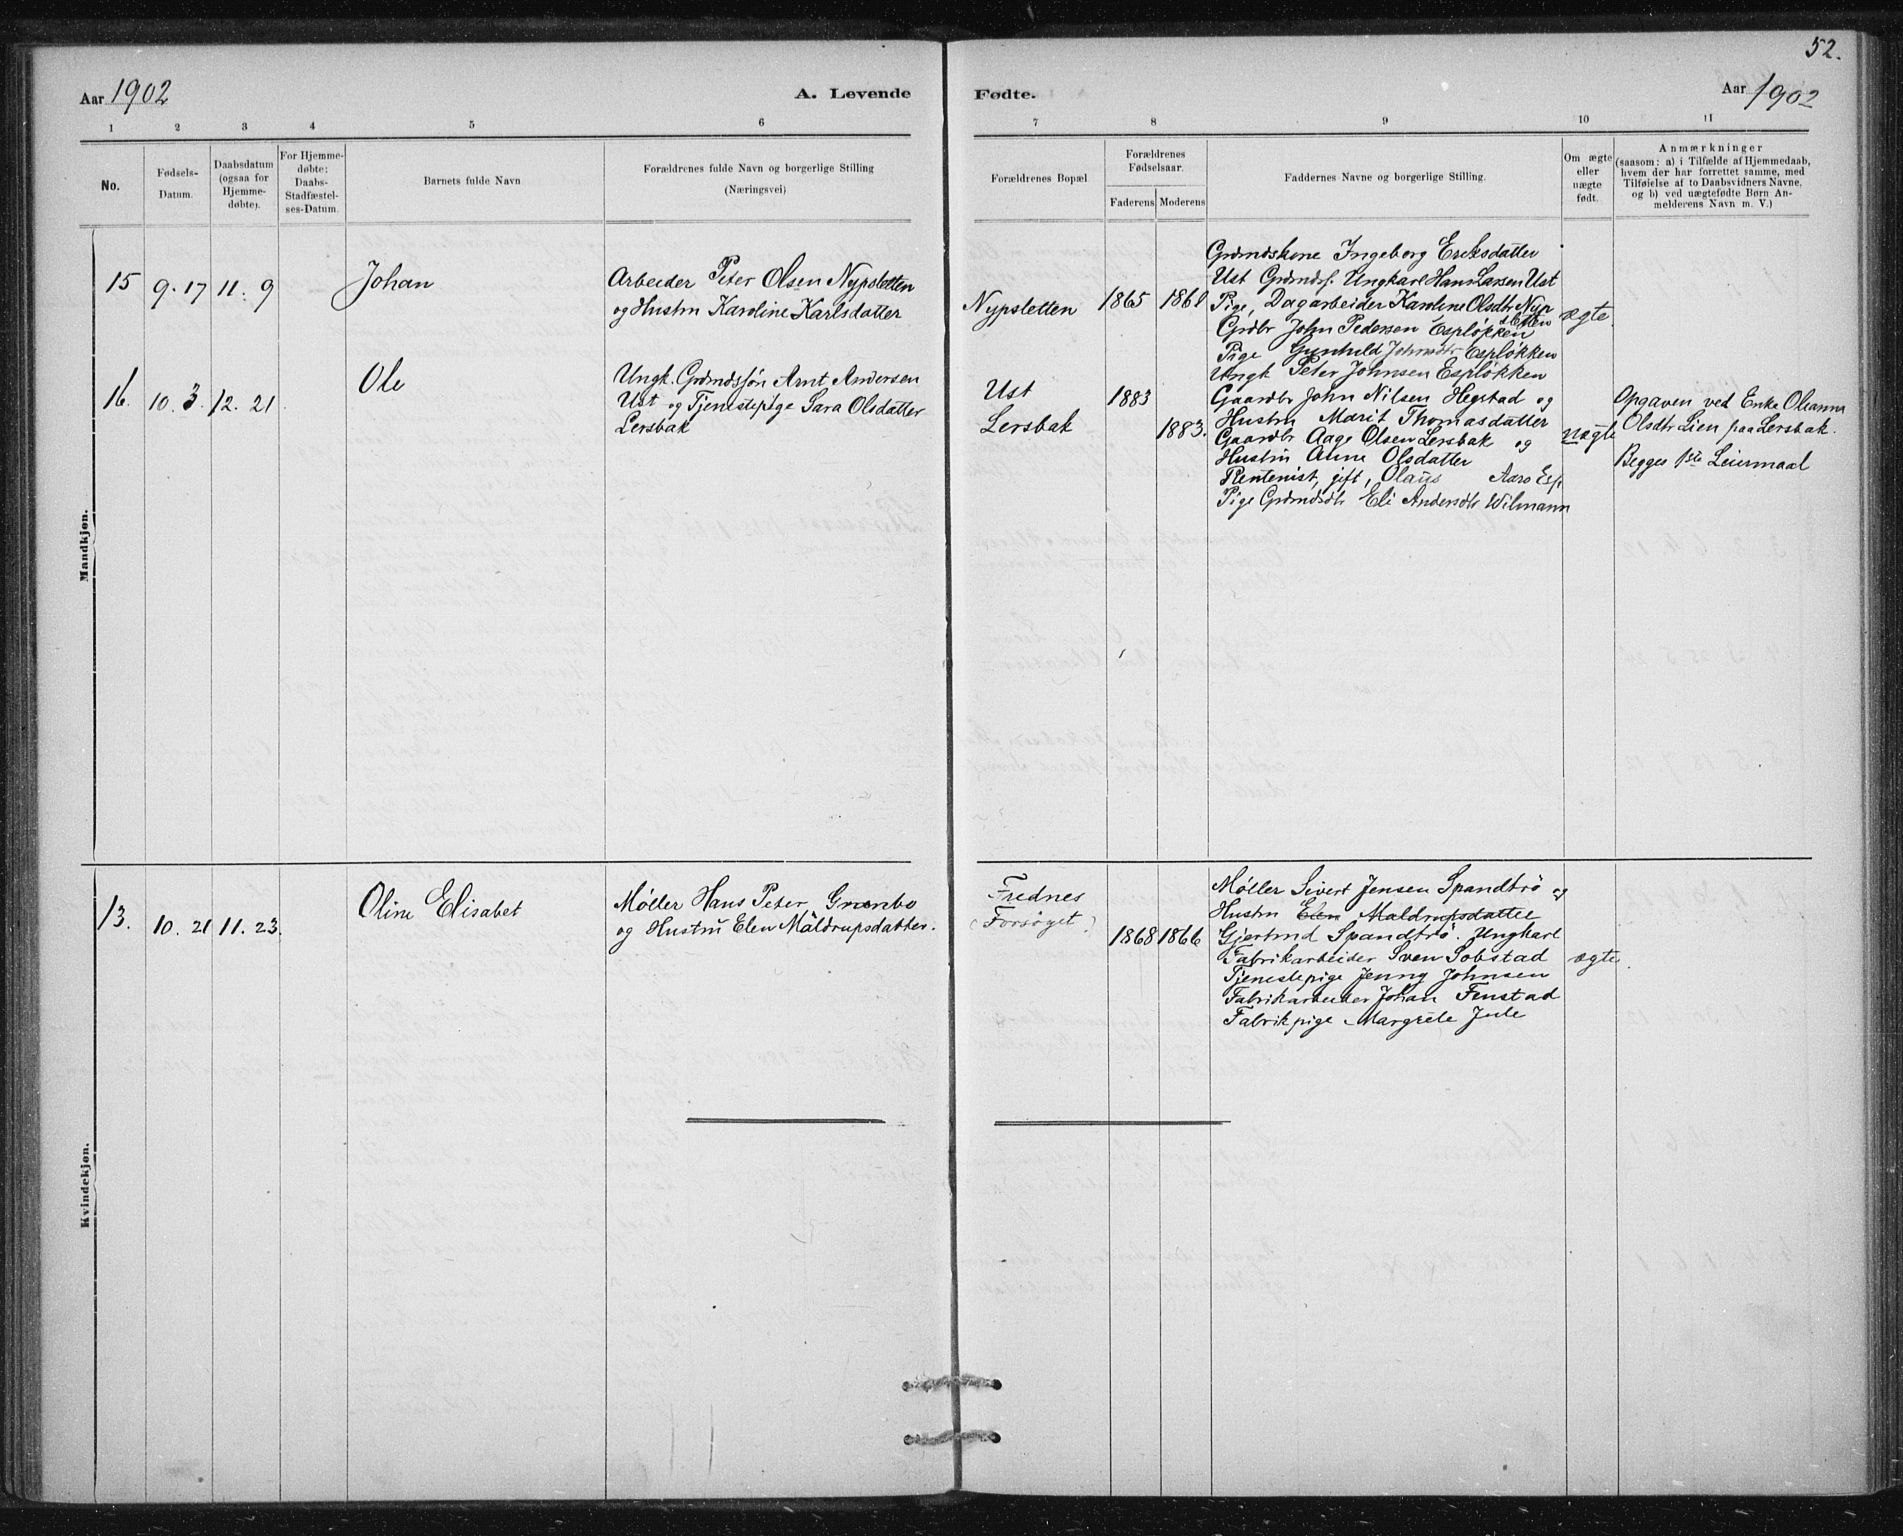 52.
Aar 1902
A. Levende Fødte.
Aar 1902
1 2 3 4 5 6 7 8 9 10 11
No.
Fødsels-
Datum.
Daabsdatum
(ogsaa for
Hjemme-
døbte).
For Hjemme-
døbte:
Daabs-
Stadfæstel-
ses-Datum.
Barnets fulde Navn
Forældrenes fulde Navn og borgerlige Stilling
(Næringsvei)
Forældrenes Bopæl.
Forældrenes
Fødselsaar.
Faderens Moderens
Faddernes Navne og borgerlige Stilling.
Om ægte
eller
uægte
født.
Anmærkninger
(saasom: a) i Tilfælde af Hjemmedaab,
hvem der har forrettet samme, med
Tilføielse af to Daabsvidners Navne,
og b) ved uægtefødte Børn An-
melderens Navn m. V.)
Mandkjøn.
15 9.17 11.9 Johan
Arbeider Peter Olsen Nypsletten
og Hustru Karoline Karlsdatter
Nypsletten 1865 1861
Grdmdskone Ingeborg Eriksdatter
Ust Grdmdsf. Ungkarl Hans Larsen Ust
Pige, Dagarbeider Karoline Olsdtr Nyp
sletten
Grdbr John Pedersen Espløkken
Pige Gunhild Johnsdtr Espløkken
Ungk Peter Johnsen Espløkken
ægte
16. 10.3. 12.21 Ole
Ungk. Grdmdssøn Arnt Andersen
Ust og Tjenestepige Sara Olsdatter
Lersbak
Ust 1883
Lersbak 1883.
Gaardbr John Nilsen Hegstad og
Hustru Marit Thomasdatter
Gaardbr Aage Olsen Lersbak og
Hustru Anne Olsdatter
Rentenist, gift, Olaus Aaro Esp.
Pige Grdmdsdtr Eli Andersdtr Wilmann
uægte
Opgaven ved Enke Oleanna
Olsdtr Lien paa Lersbak.
Begges 1ste Leiermaal
Kvindekjøn.
13. 10.21 11.23. Oline Elisabet
Møller Hans Peter Grønbo
og Hustru Elen Maldrupsdatter.
Frednes
(Forsøget)
1868 1866
Møller Sivert Jensen Spandtrø og
Hustru Elen Maldrupsdatter
Gjertrud Spandtrø. Ungkarl
Fabrikarbeider Sven Sobstad
Tjenestepige Jenny Johnsen
Fabrikarbeider Johan Finstad
Fabrikpige Margrete Jule
ægte.